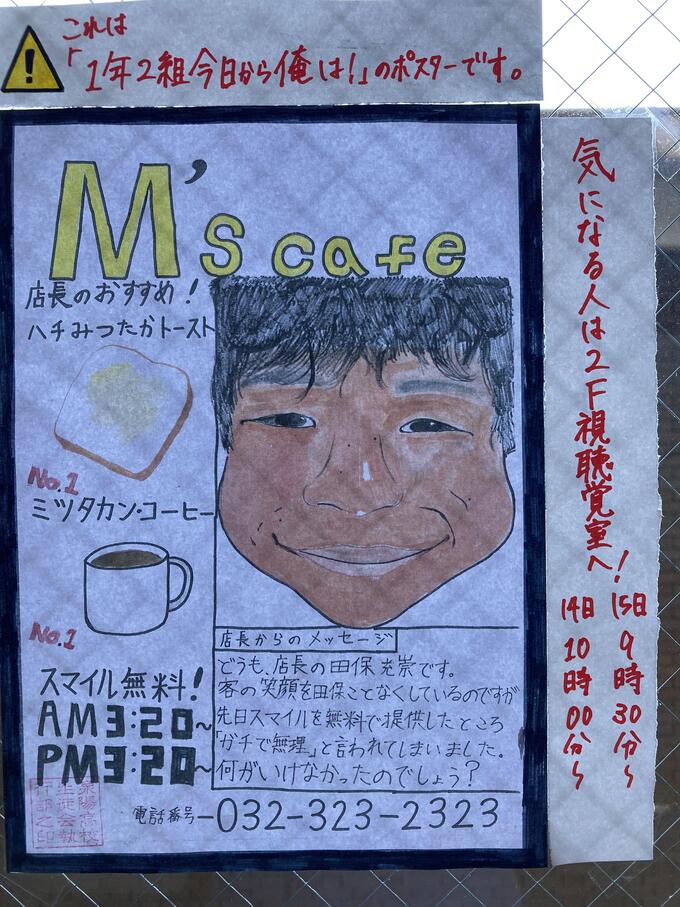 これは
「1年2組今日から俺は!」のポスターです。
M's cafe
店長のおすすめ!
ハチみつたかトースト
No.1
ミツタカン・コーヒー
No.1
スマイル無料!
AM3:20~
PM3:20~
店長からのメッセージ
どうも、店長の田保充崇です。
客の笑顔を田保ことなくしているのですが
先日スマイルを無料で提供したところ
「ガチで無理」と言われてしまいました。
何がいけなかったのでしょう?
電話番号-032-323-2323
気になる人は2F視聴覚室へ!
15日9時30分~
14日10時00分~